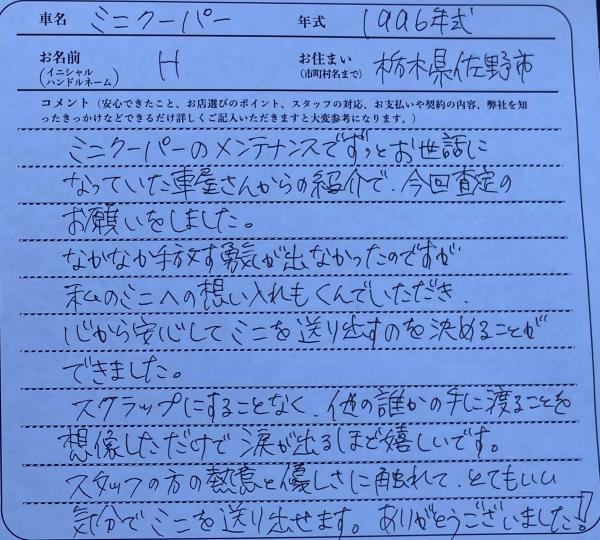 車名 ミニクーパー 年式 1996年式
お名前 (イニシャル ハンドルネーム) H お住まい (市町村名まで) 栃木県佐野市
コメント（安心できたこと、お店選びのポイント、スタッフの対応、お支払いや契約の内容、弊社を知
ったきっかけなどできるだけ詳しくご記入いただきますと大変参考になります。）
ミニクーパーのメンテナンスでずっとお世話に
なっていた車屋さんからの紹介で、今回査定の
お願いをしました。
なかなか手放す勇気が出なかったのですが
私のミニへの想い入れもくんでいただき、
心から安心してミニを送り出すのを決めることが
できました。
スクラップにすることなく、他の誰かの手に渡ることを
想像しただけで涙が出るほど嬉しいです。
スタッフの方の熱意と優しさに触れて、とてもいい
気分でミニを送り出せます。ありがとうございました!